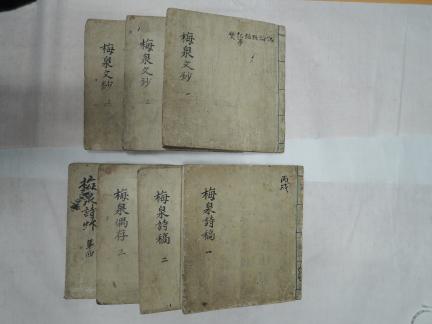 梅泉文鈔 三
梅泉文鈔 二
梅泉文鈔 一
梅泉詩艸 第四
梅泉偶存 三
梅泉詩稿 二
梅泉詩稿 一
丙戌